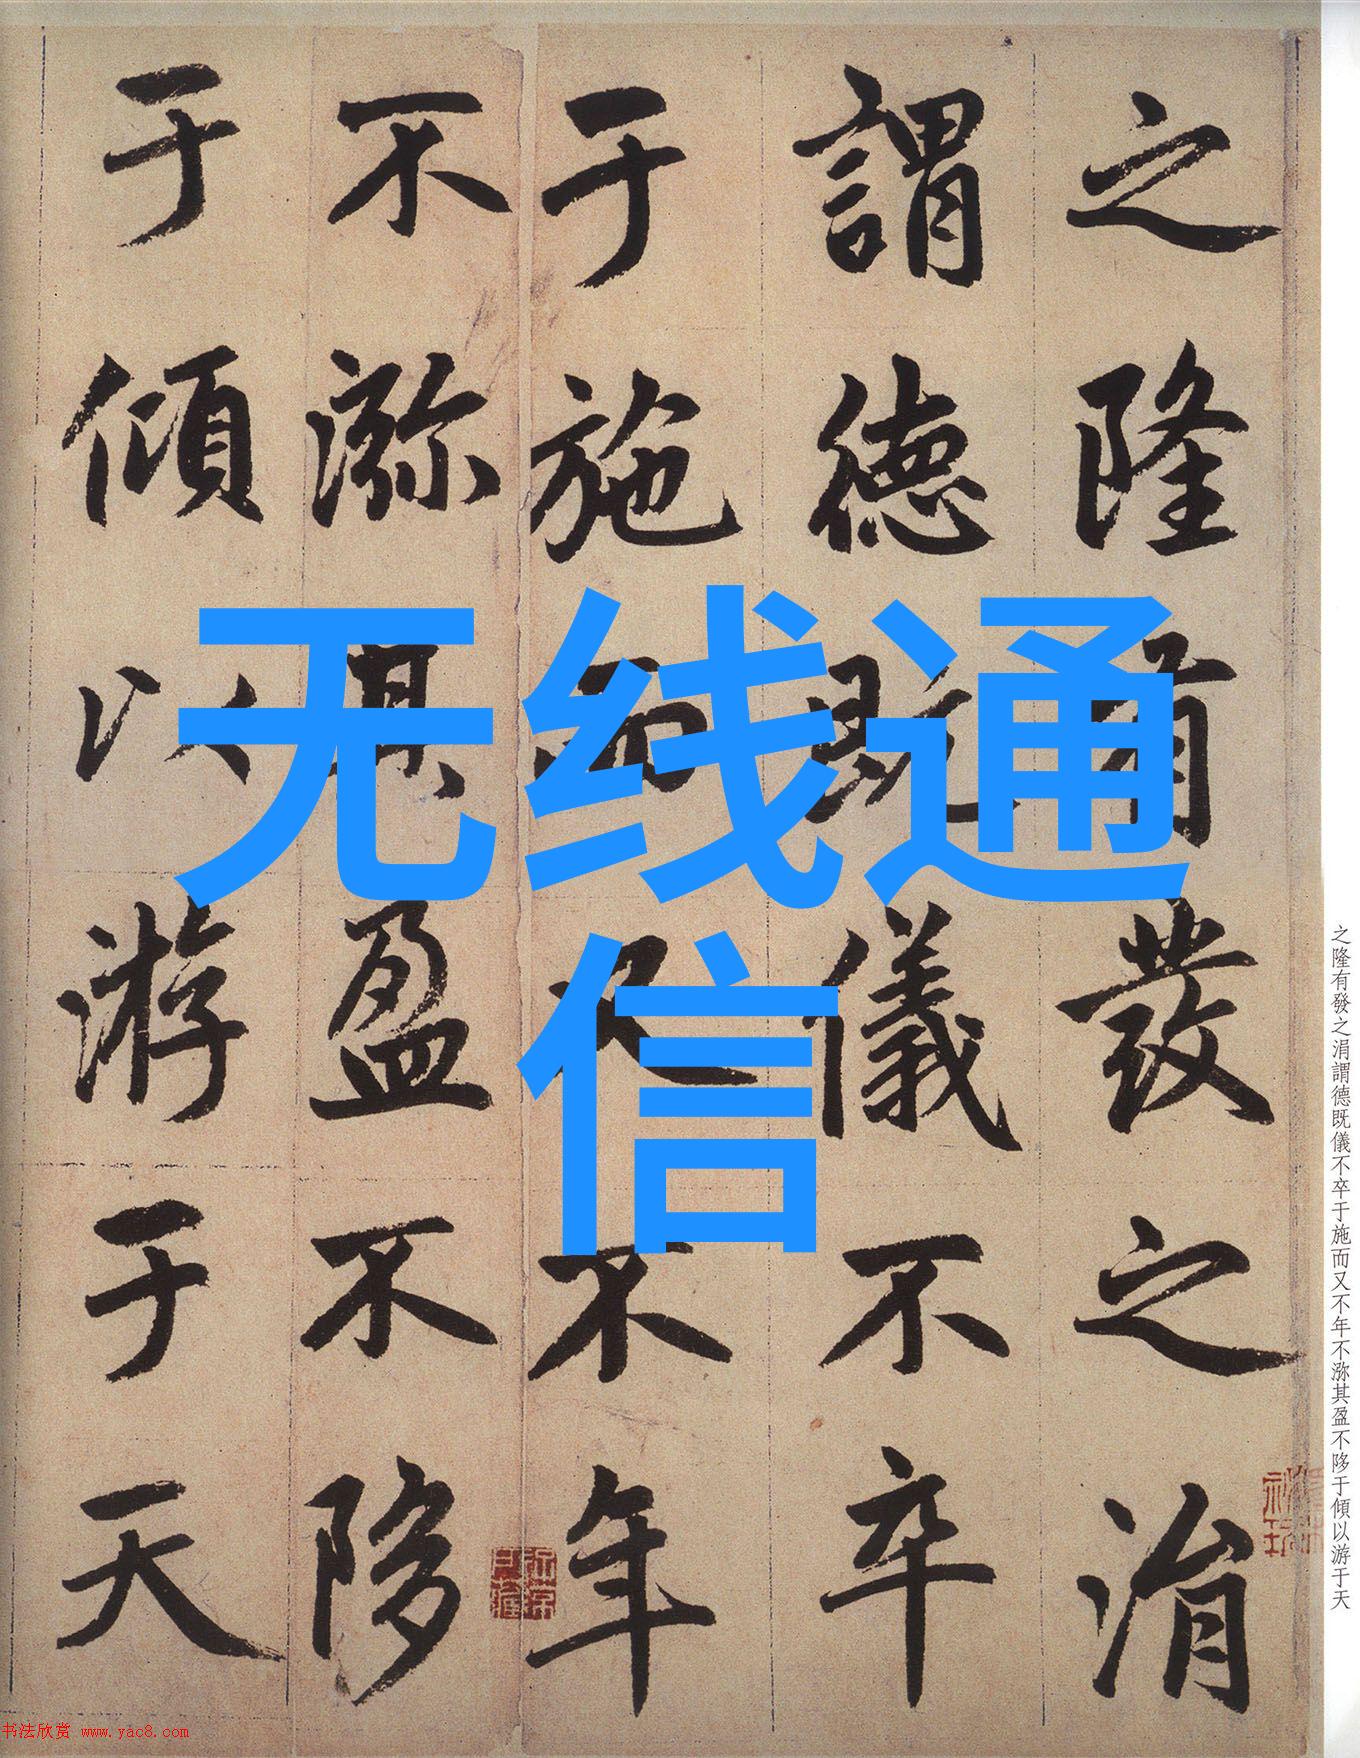 之隆有發之涓
謂德既儀不卒
于施而又不年
不㳽其盈不陊
于傾以游于天
无线通
信
之隆有發之涓謂德既儀不卒于施而又不年不㳽其盈不陊于傾以游于天
书法欣赏 www.yac8.com